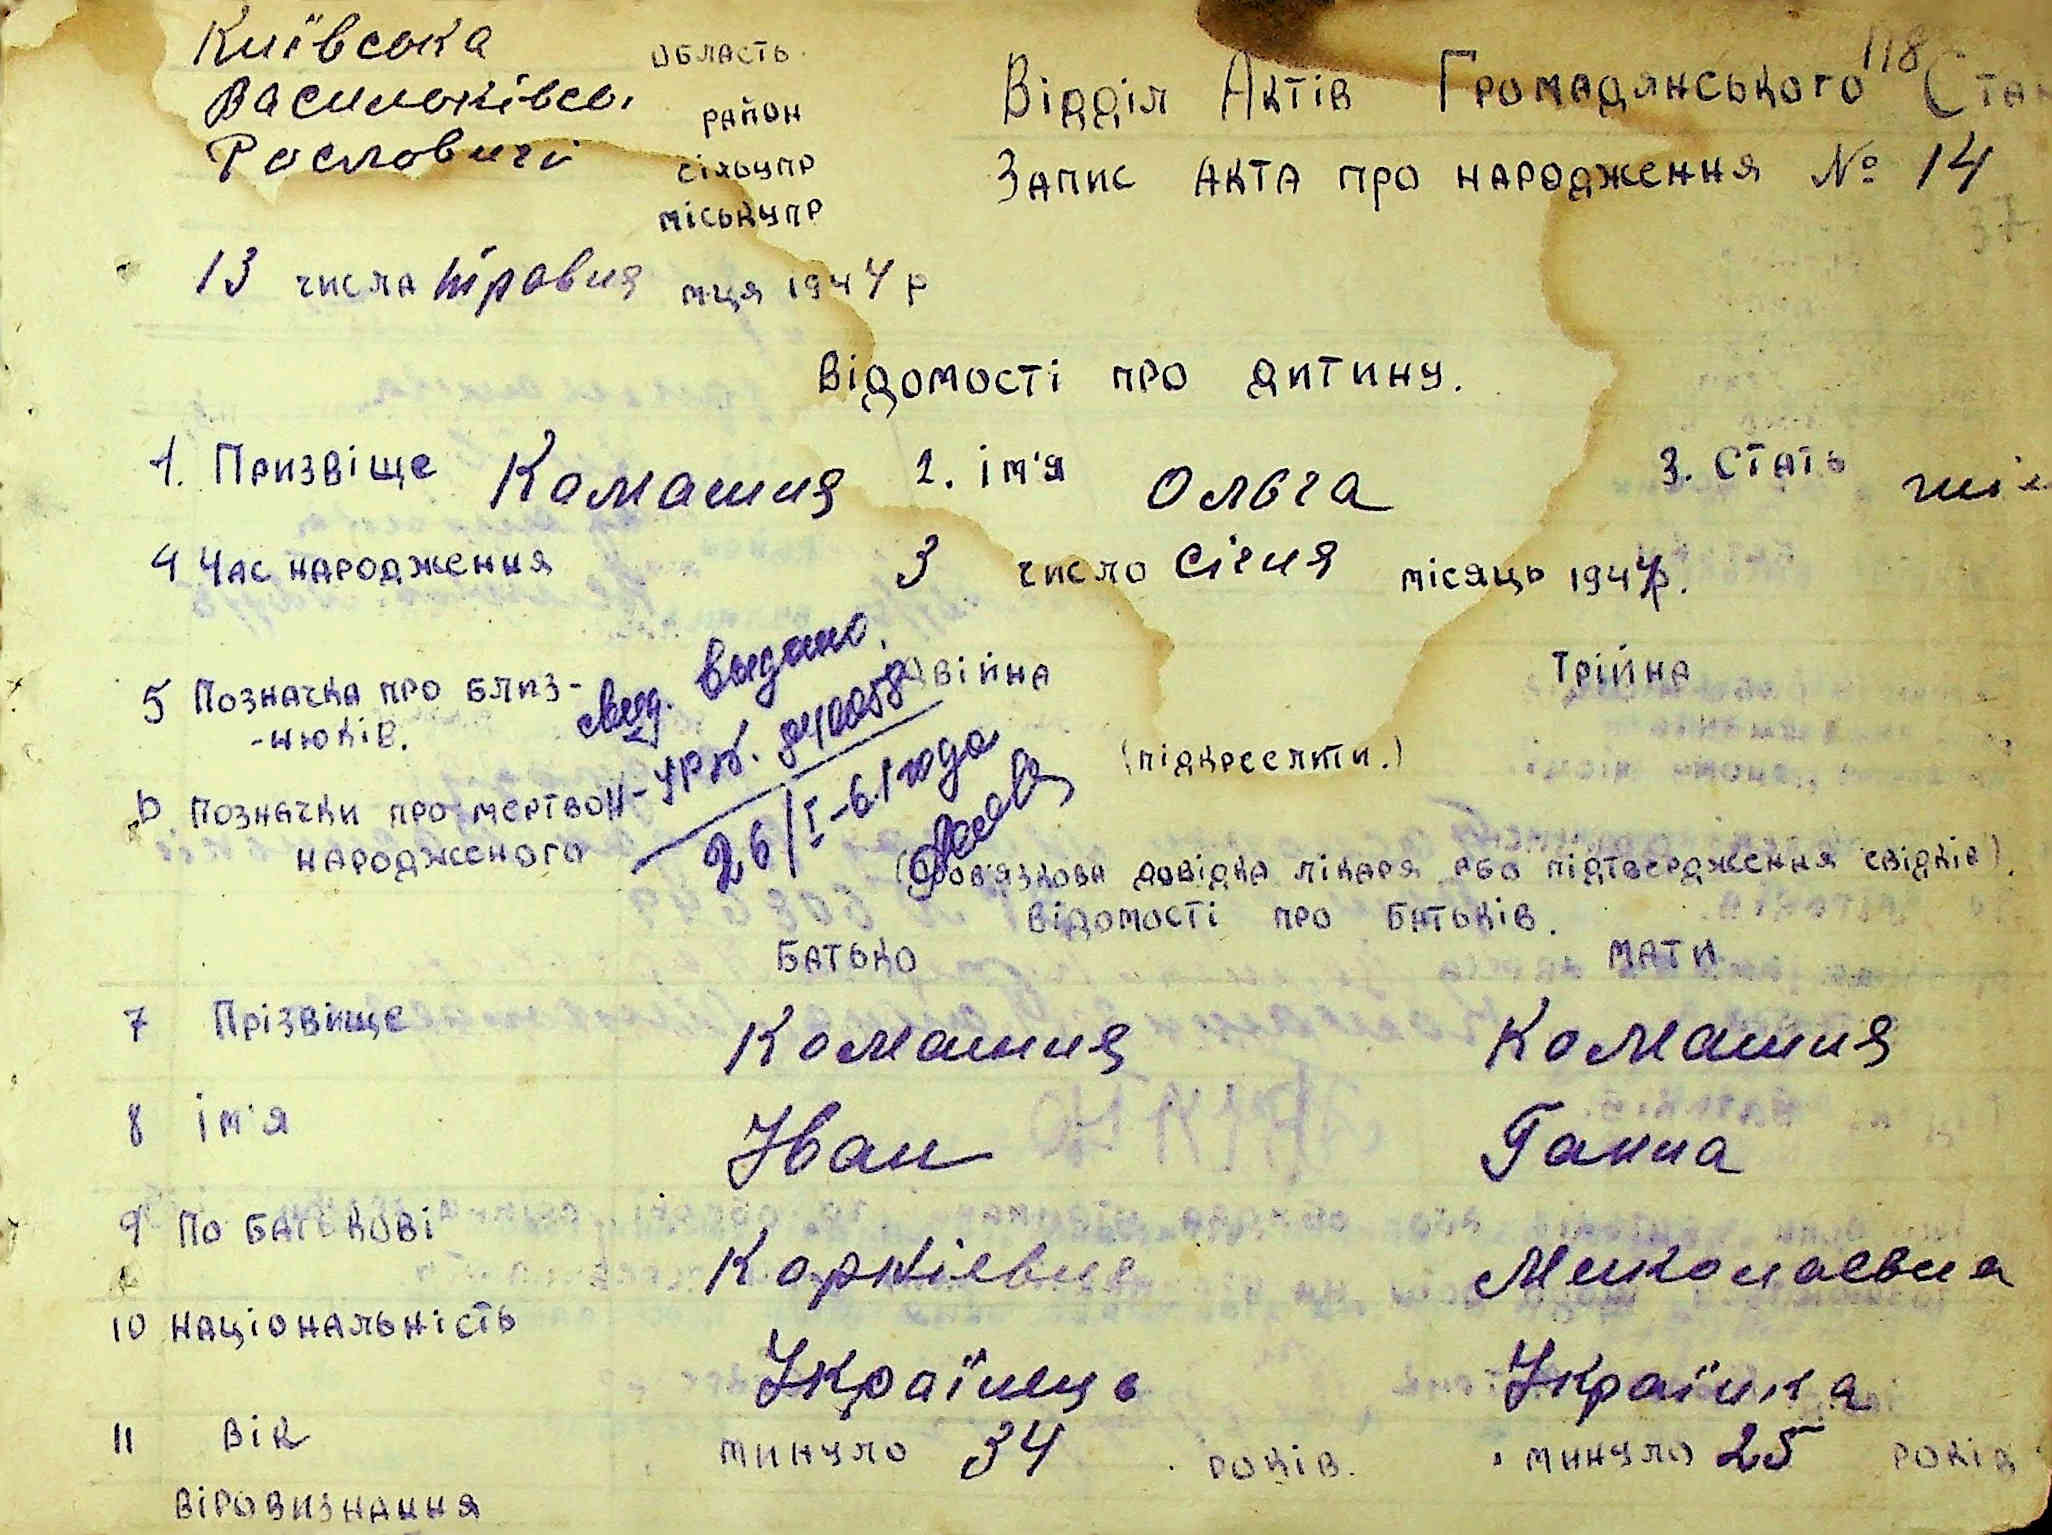 118
Київська область
Васильківсь. район
Рословичі сільупр
міськупр
Відділ Актів Громадянського Стан
Запис акта про народження № 14
37
13 числа травня м-ця 1944 р
Відомості про дитину.
1. Призвіще Комашня 2. ім'я Ольга 3. Стать жін
4 Час народження 3 число січня місяць 1944р.
5 Позначка про близ- Двійна Трійна
-нюків.
(підкреслити.)
свид. выдано
УРБ. 840058
26/I-61 года
6 Позначки про мертвон-
народженого (Обов'язкова довідка лікаря або підтвердження свідків).
Відомості про батьків.
Батько Мати
7 Прізвище Комашня Комашня
8 ім'я Іван Ганна
9 По батькові Миколаевна
10 національність Українець Українка
11 вік минуло 34 років. минуло 25 років
віровизнання